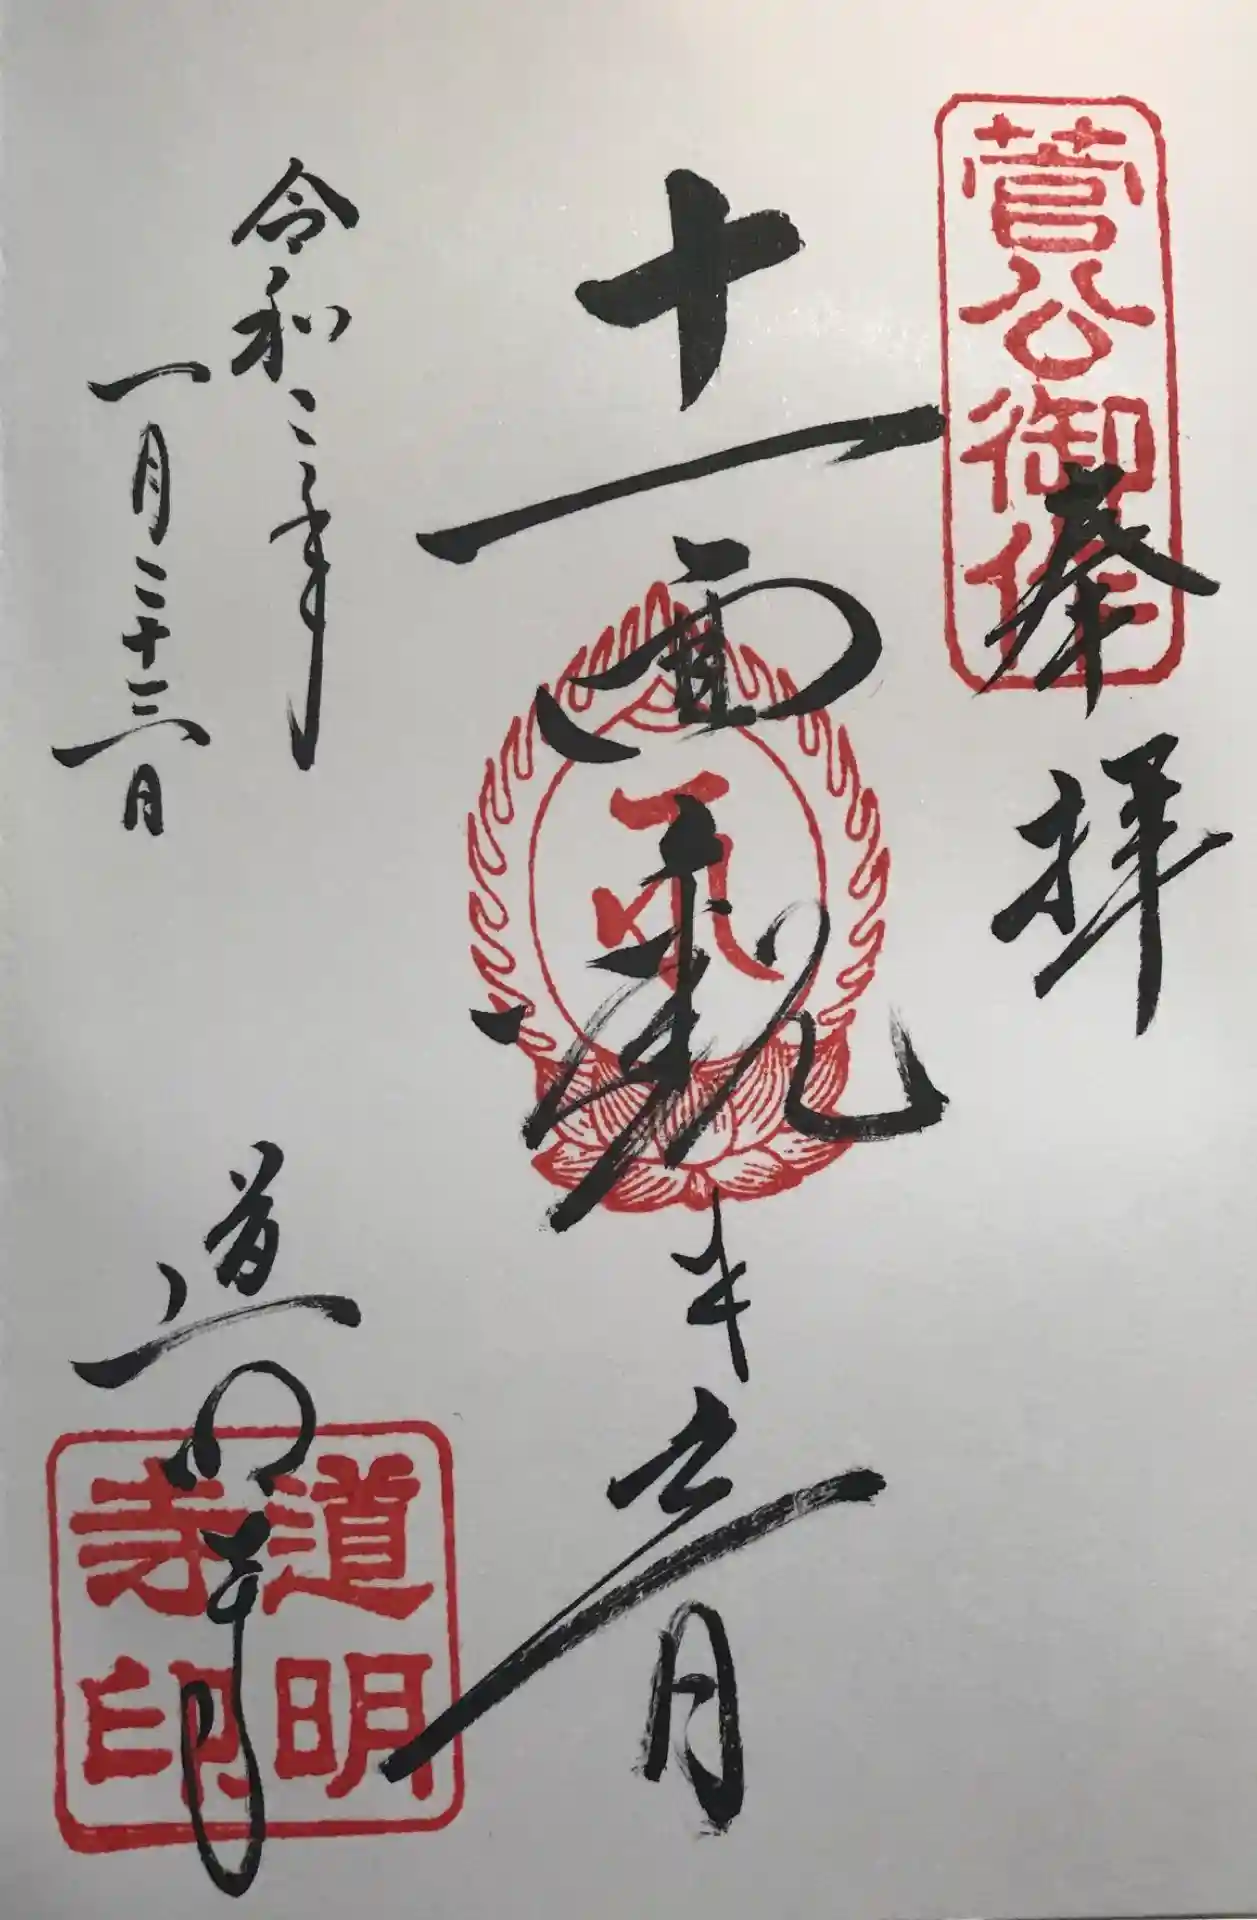 菅公御作
奉拝
十一面観世音
令和二年
一月二十三日
道明寺
道明
寺印